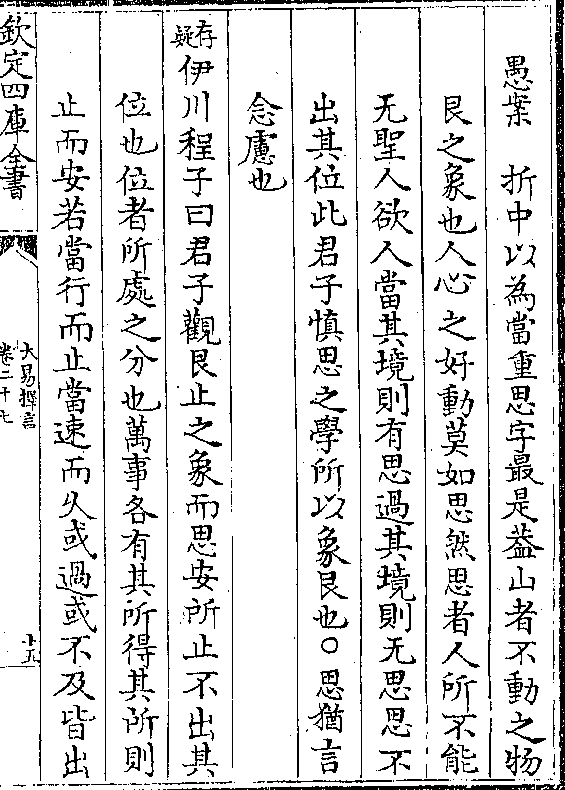 愚案　折中以為當重思字最是葢山者不動之物
艮之象也人心之好動莫如思然思者人所不能
无聖人欲人當其境則有思過其境則无思思不
出其位此君子慎思之學所以象艮也○思猶言
念慮也
存疑伊川程子曰君子觀艮止之象而思安所止不出其
位也位者所處之分也萬事各有其所得其所則
止而安若當行而止當速而久或過或不及皆出
欽定四庫全書
大易擇言
卷二十七
十五